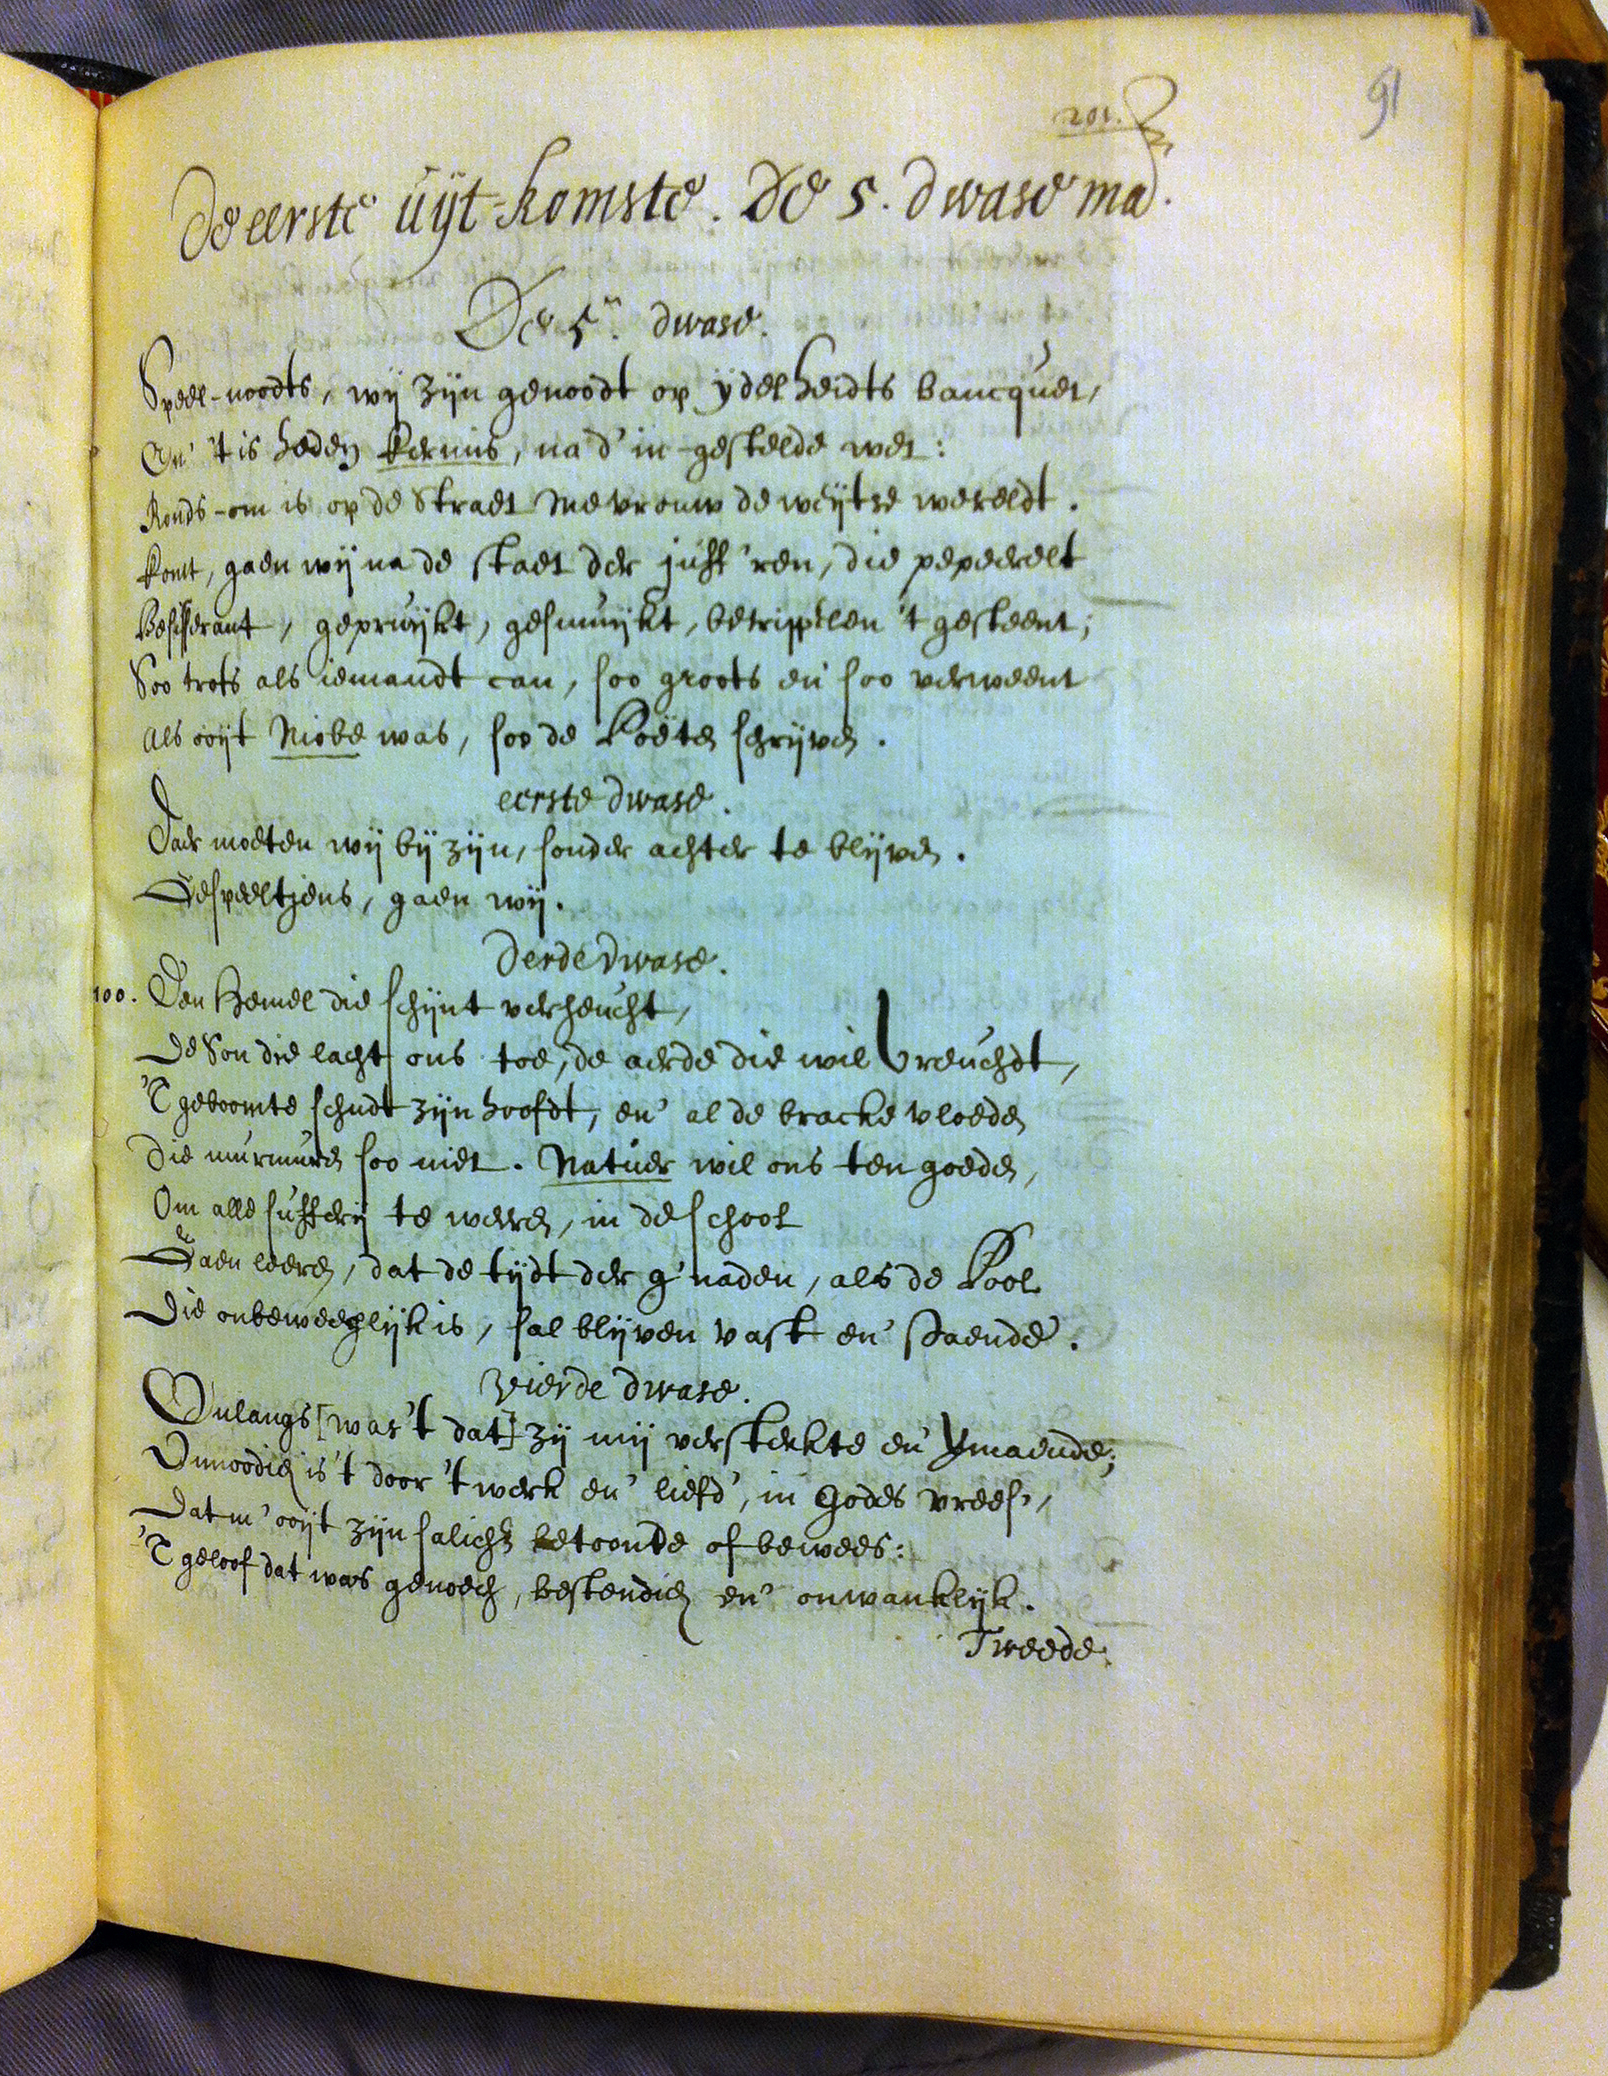 201.
91
De eerste uÿt-komste. De 5. dwase ma.
De 5.n dwase.
Speel-noodts, wij zijn genoodt op ijdelheidts bancquet,
En' 't is heden kermis, na d' in-gestelde wet:
Ronds-om is op de straet Mevrouw de weijtse wereldt.
komt, gaen wij na de stadt der juff'ren, die gepeerelt
geprujkt, gesmujkt, betripplen 't gesteent;
Soo trots als iemandt can, soo groots en soo verweent
Als ooijt Niobe was, soo de Poëten schrijven.
eerste dwase.
Daer moeten wij bij zijn, sonder achter te blijven.
Gespeeltjens, gaen wij.
Derde dwase.
100. Den Hemel die schijnt verheucht,
De Son die lacht ons toe, de aerde die wil vreuchdt,
'T geboomte schudt zijn hoofdt, en' al de bracke vloeden
Die murmuren soo niet. Natuer wil ons ten goeden,
Om alle sufferij te weeren, in de school
Gaen leeren, dat de tijdt der g'naden, als de Pool
Die onbeweeglijk is, sal blijven vast en' staende.
Vierde dwase.
Onlangs [was 't dat] zij mij versterkte en' vermaende;
Onnoodich is 't door 't werk en' liefd', in Godes vrees',
Dat m' ooijt zijn salicht betoonde of bewees:
'T geloof dat was genoech, bestendich en' onwanklijk.
Tweede.